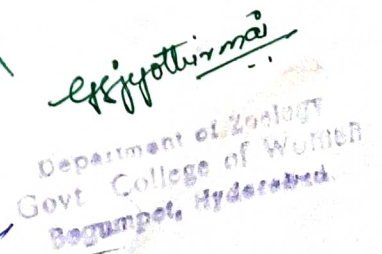 GSJyothirmai
Department of Zoology
Govt College of Women
Begumpet, Hyderabad.